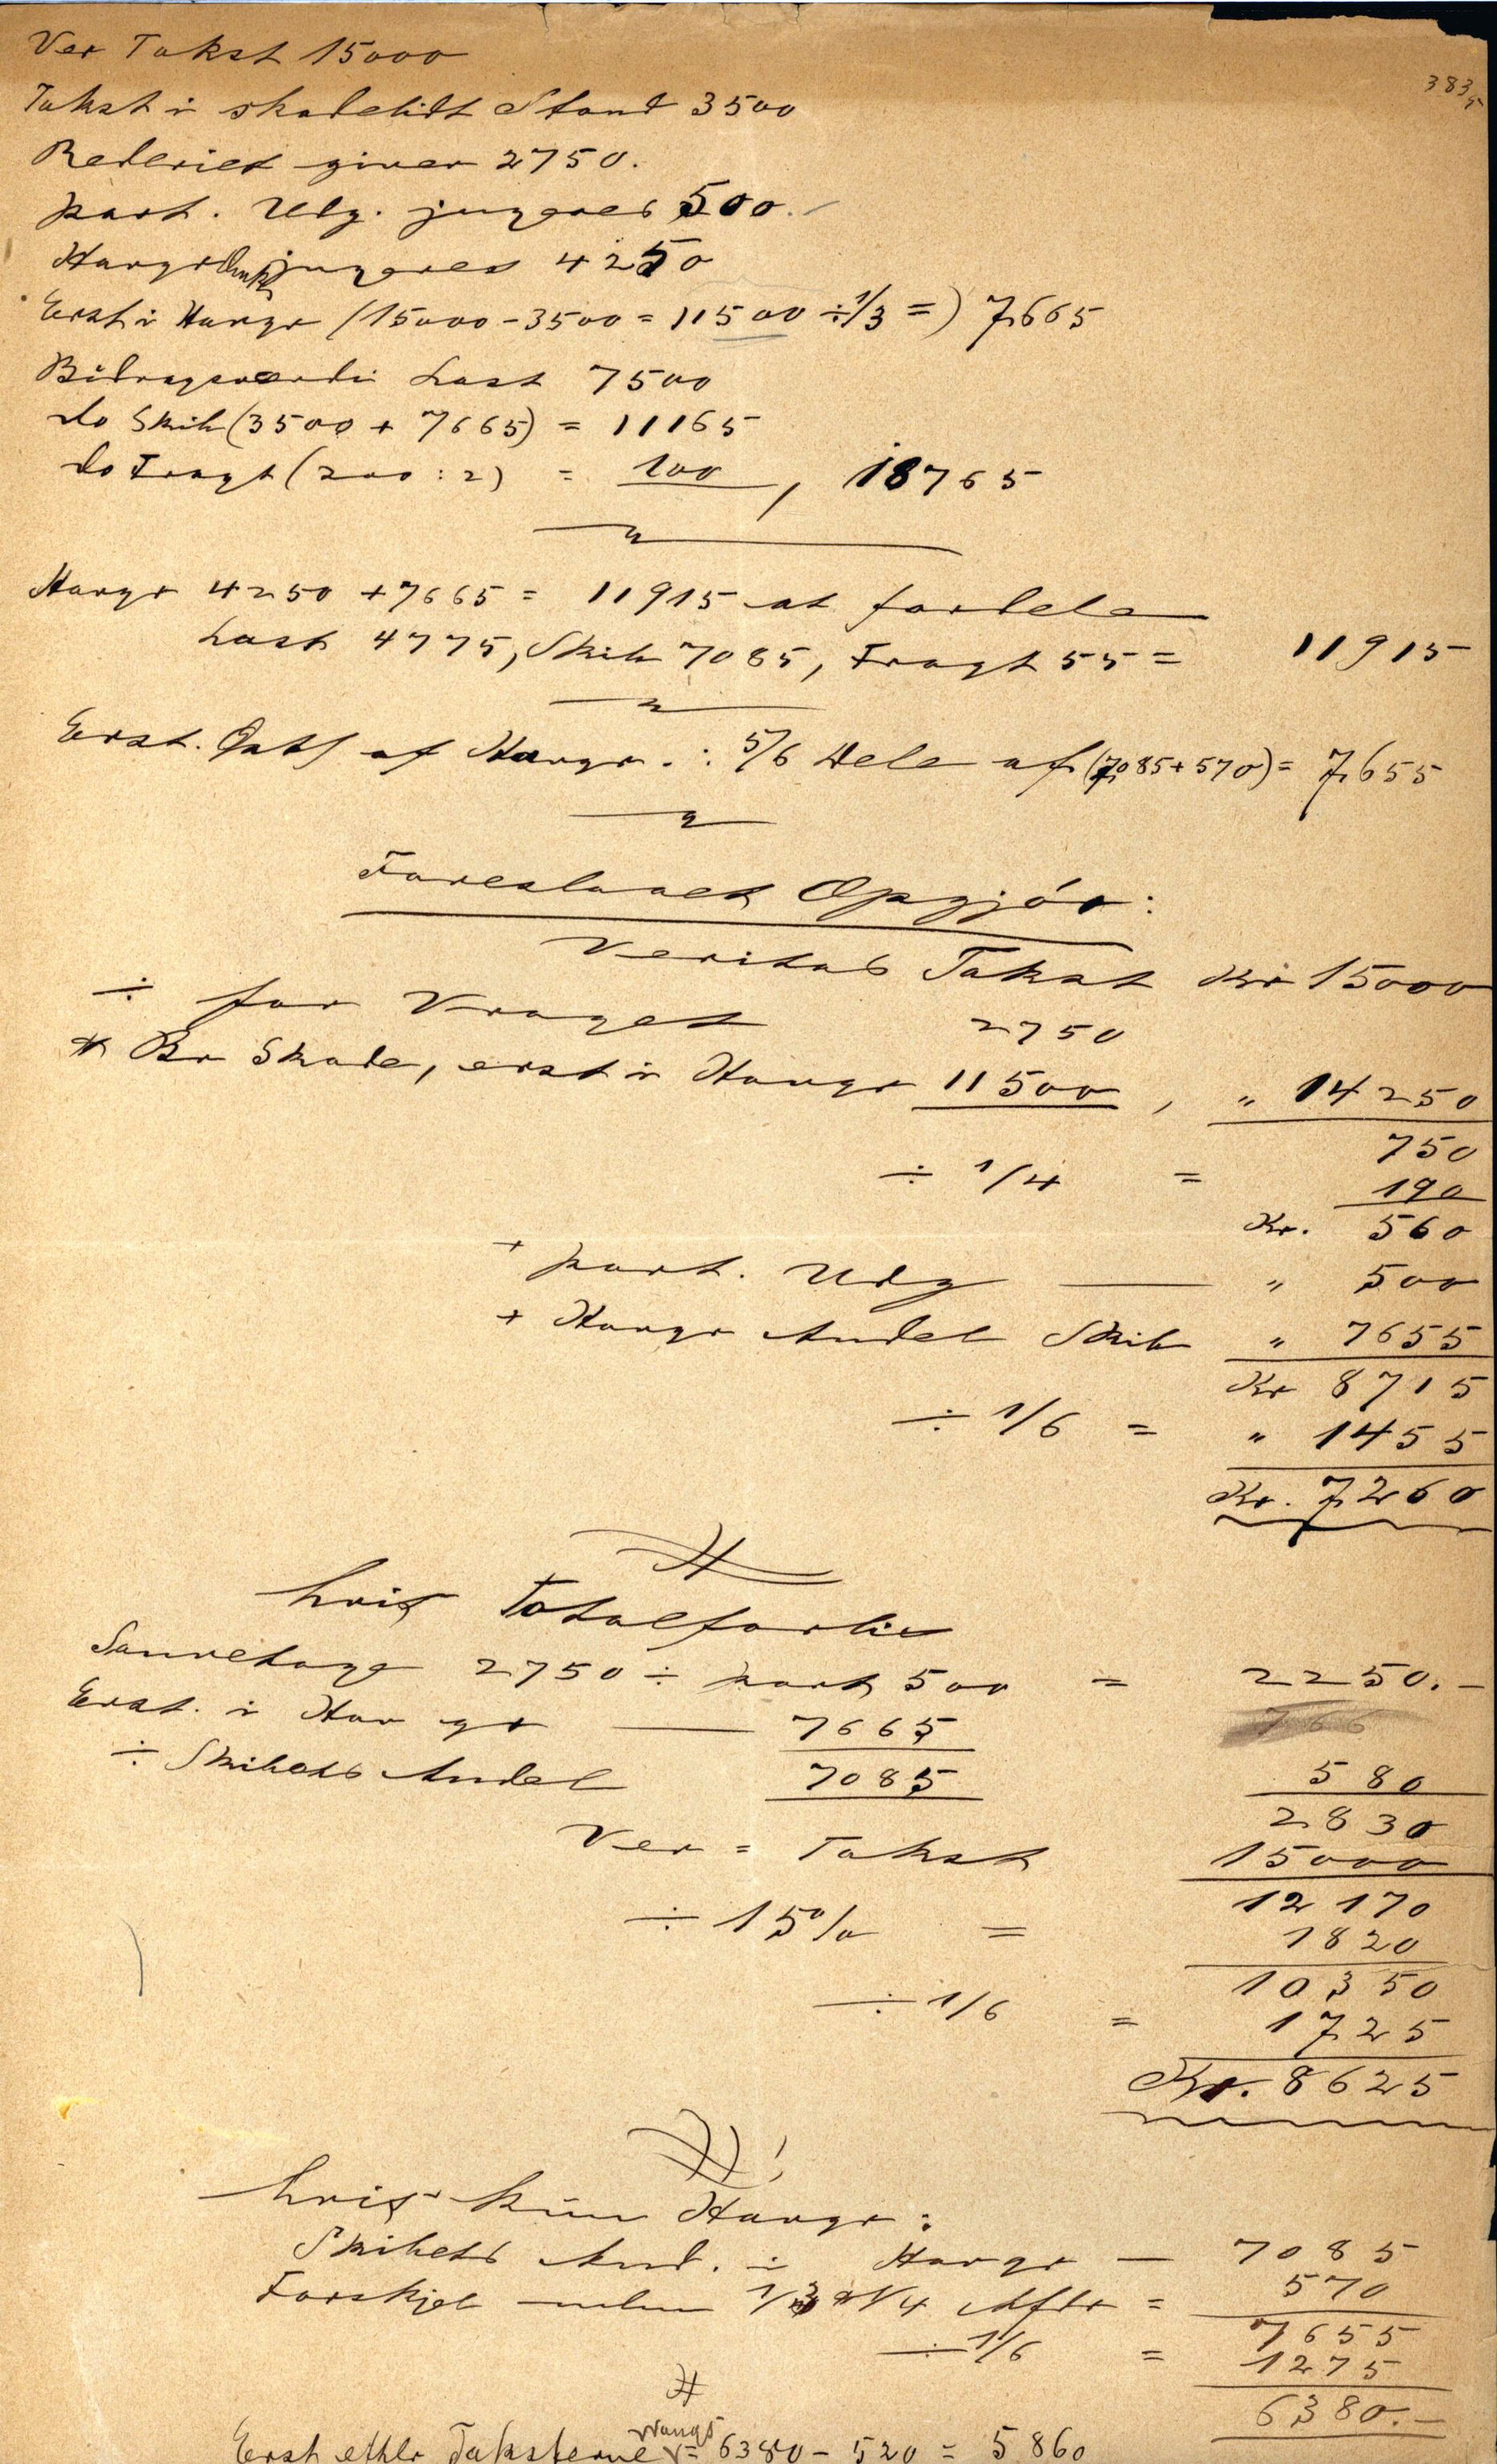 Ver Takst 15000
383
Takst i skadelidt Stand 3500
Rederiet giver 2750.
part. Udg. jusgeres 500.
Havgr jusgeres 4250
Erst i Havgr (15000 - 3500 = 11500 ÷ 1/3 =) 7665
Bidragsværdi Last 7500
do Skib (3500 + 7665) = 11165
do Fragt (200 : 2) = 100, 18765
Havgr 4250 + 7665 = 11915 at fordele
Last 4775, Skib 7085, Fragt 55 = 11915
Erst. af Havgr. : 5/6 Dele af (7085 + 570) = 7655
Foreslaaet Opgjór:
Veritas Takst Kr 15000
÷ for Vraget 2750
* Br Skade, erst i Havgr 11500, " 14250
750
÷ 1/4 = 190
Kr. 560
+ part. Udg — " 500
+ Havgr Andel Skib " 7655
Kr 8715
÷ 1/6 = " 1455
Kr. 7260
hvis Totalforlis
2750 ÷ part 500 = 2250.-
Erst. i Havgr — 7665
766
÷ Skibets Andel 7085
580
2830
Ver = Takst 15000
12170
÷ 15% = 1820
10350
÷ 1/6 = 1725
Kr. 8625
hvis kun Havgr:
Skibets And. i Havgr — 7085
Forskjel mlm 1/3 & 1/4 Afdr = 570
7655
÷ 1/6 = 1275
6380.-
Erst efter Taksterne = 6380 - 520 = 5860